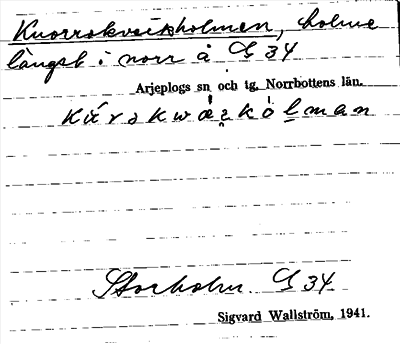 Knorrokveisholmen, holme
längst i norr å G 34
Arjeplogs sn och tg. Norrbottens län.
Storholm. G 34
Sigvard Wallström, 1941.